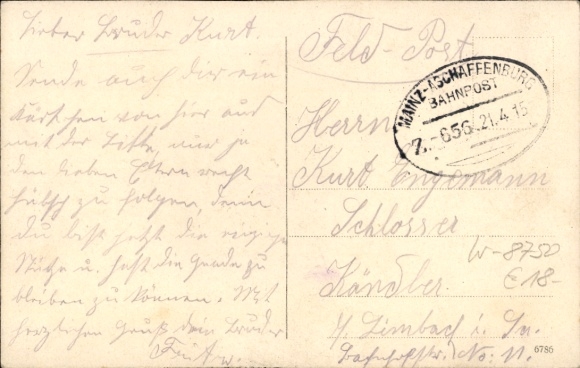 Lieber Bruder Kurt.
Sende auch dir ein
Kärtchen von hier aus
mit der Bitte, nur ja
den lieben Eltern recht
hübsch zu folgen, denn
du bist jetzt die einzige
Stütze u. hast die Gnade zu
bleiben zu können. Mit
herzlichen Gruß dein Bruder
Feld-Post
MAINZ-ASCHAFFENBURG
BAHNPOST
Z. 656 21.4.15
Herrn
Kurt Engemann
Schlosser
W-8750
€ 18-
Kändler
b/ Limbach i. Sa.
Bahnhofstr. No: 11.
6786